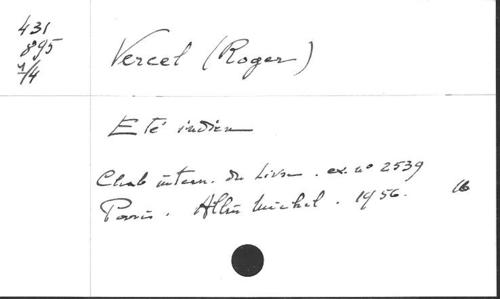 431
895
1/4
Vercel (Roger)
Eté indien
Club intern. du Livre. ex. nº 2539
Paris. Albin Michel. 1956. 16